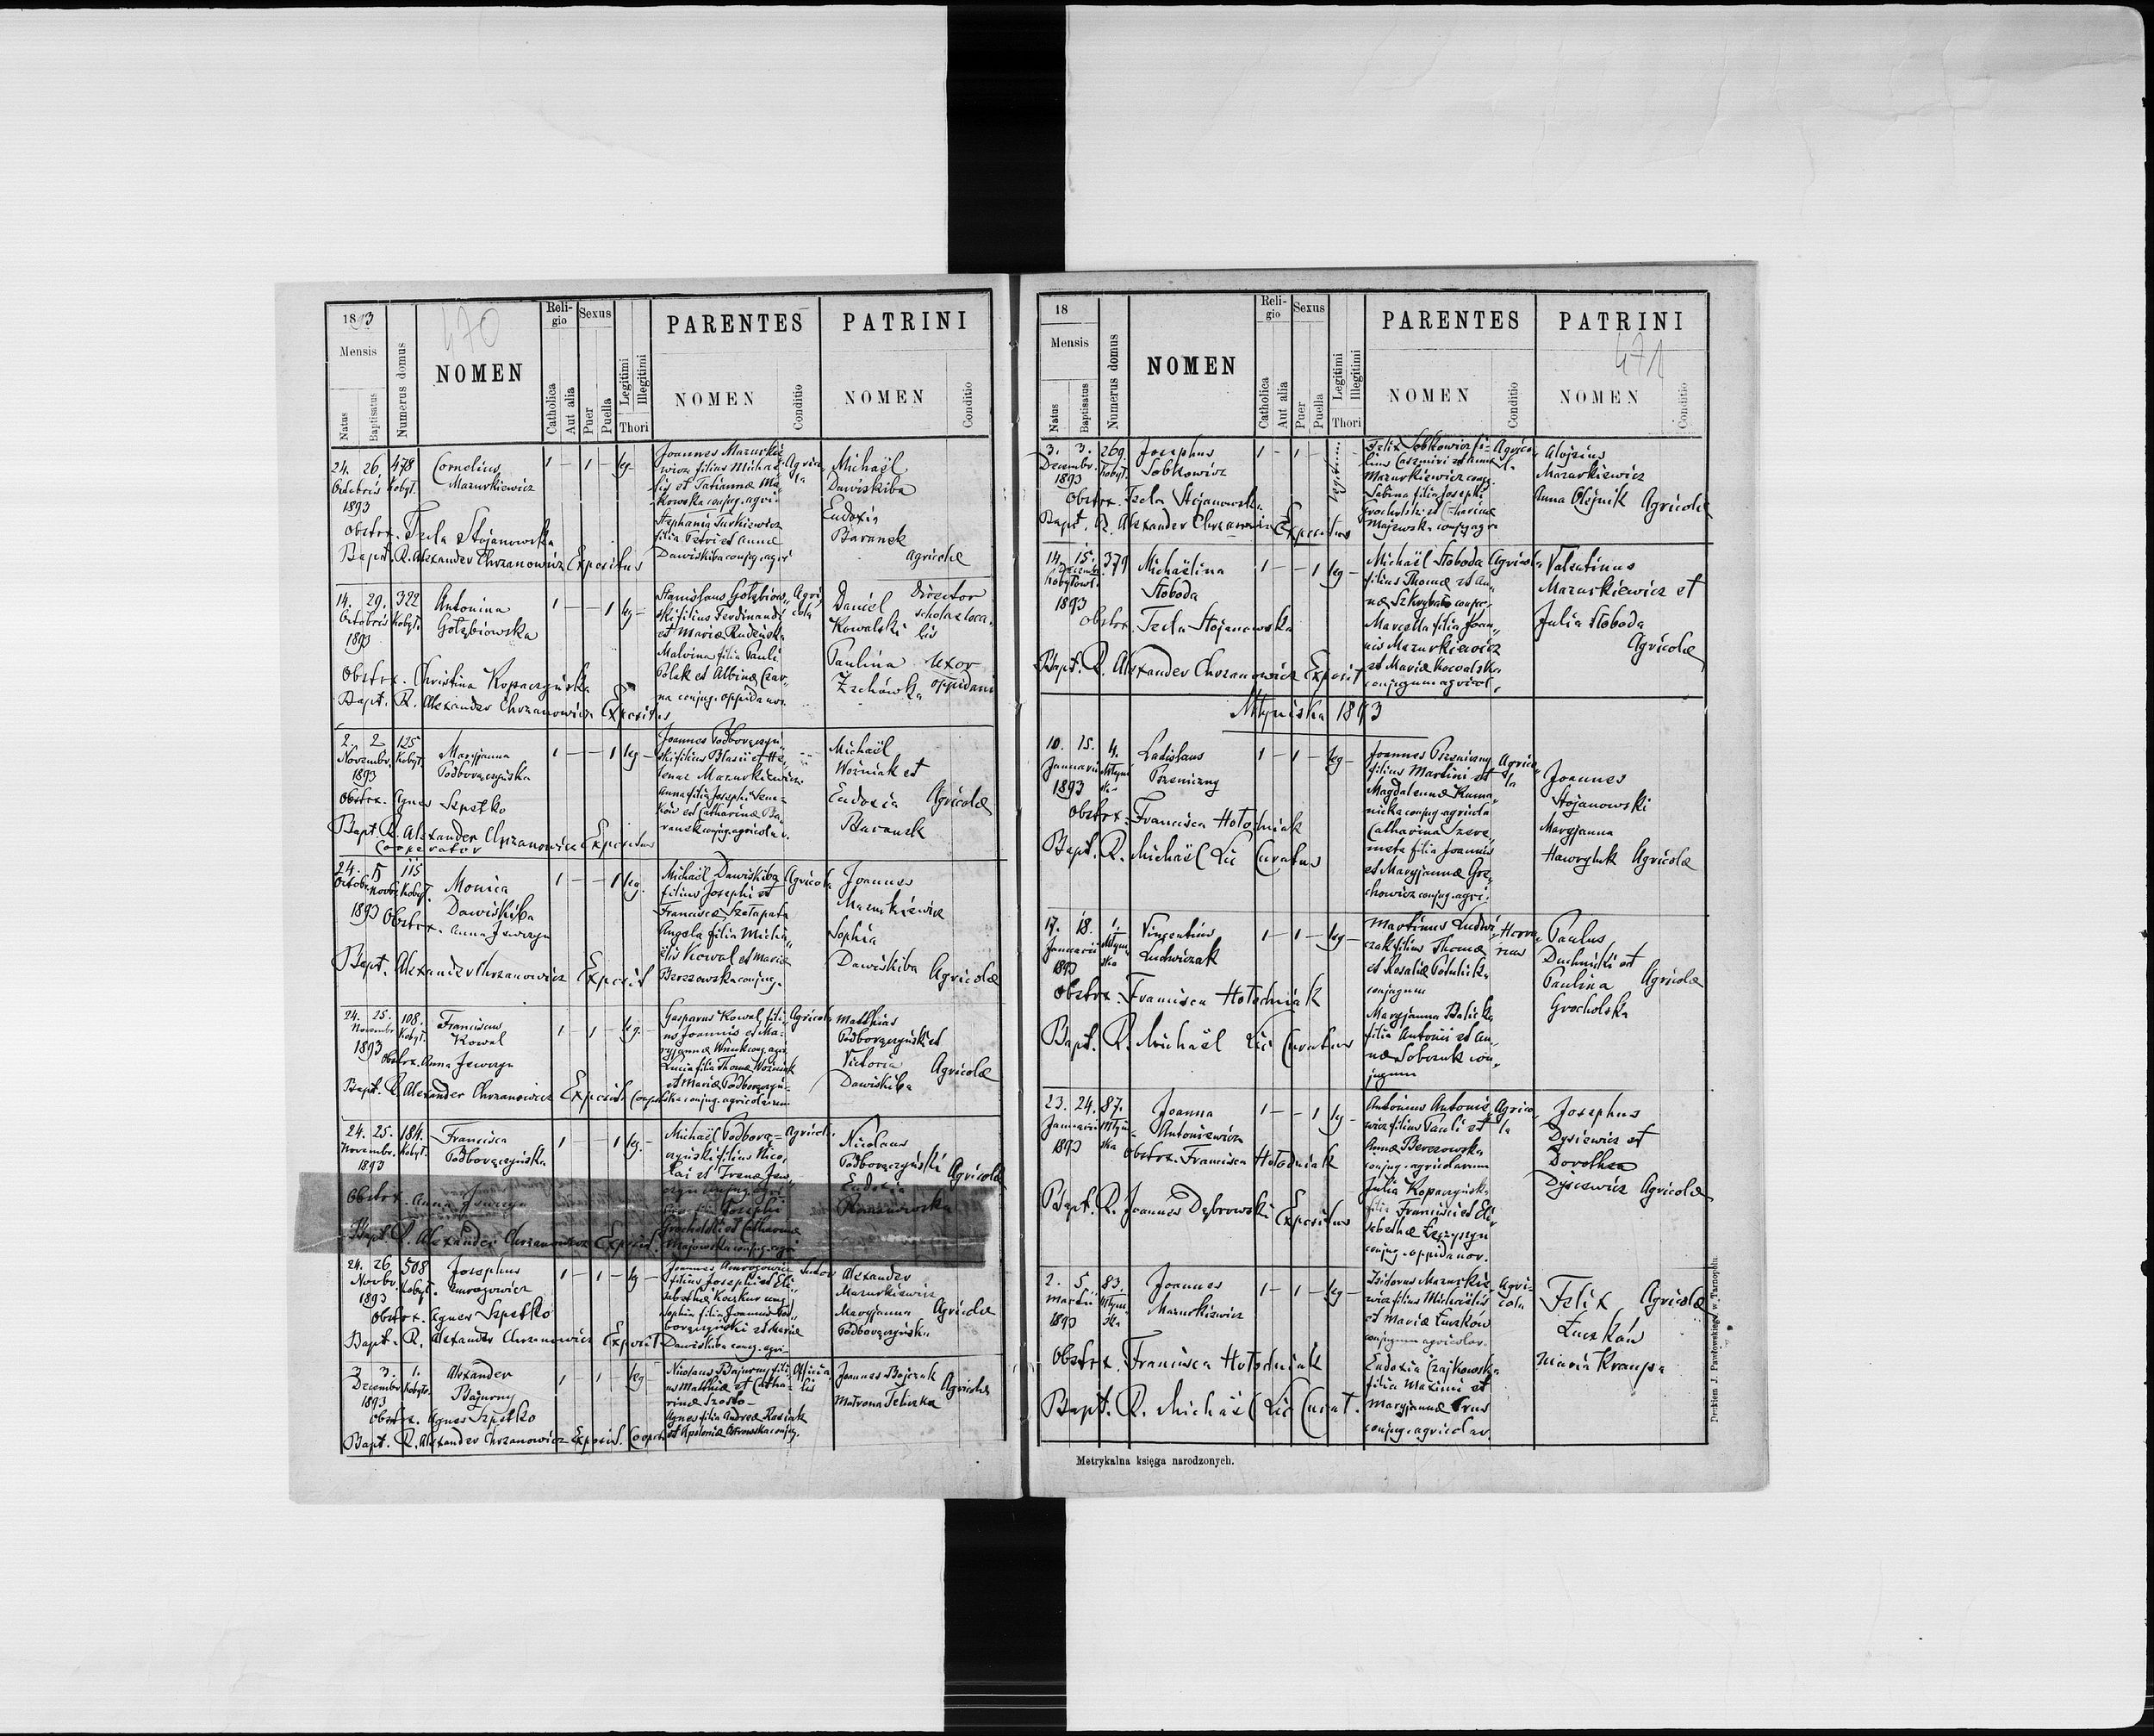 1893
470
Mensis
Natus
Baptisatus
Numerus domus
NOMEN
Reli-
gio
Catholica
Aut alia
Sexus
Puer
Puella
Legitimi
Illegitimi
Thori
PARENTES
NOMEN
Conditio
PATRINI
NOMEN
Conditio
24. 26. 478
Octobris Kobyl.
1893
Cornelius
Mazurkiewicz
1 – 1 – leg –
Joannes Mazurkie
wicz filius Michaë
lis et Tatiannæ Ma
kowska conjug. agri
Stephania Turkiewicz
filia Petri et Annæ
Dawiskiba conjug. agri
Agrico
la
Michaël
Dawiskiba
Eudoxia
Baranek
agricolæ
Obstetr. Tecla Stojanowska
Bapt. R. Alexander Chrzanowicz Expositus
14. 29. 322
Octobris Kobyl.
1893
Antonina
Gołębiowska
1 – – 1 leg –
Stanislaus Gołębiow
ski filius Ferdinandi
et Mariæ Rudzińska
Malvina filia Pauli
Polak et Albinæ Czar
na conjug. oppidanor.
Agri
cola
Daniel Director
Kowalski scholæ loca
lis
Paulina Uxor
Zechówka oppidani
Obstetr. Christina Kopaczyńska
Bapt. R. Alexander Chrzanowicz Expositus
2. 2 125
Novembr. Kobyl.
1893
Maryjanna
Podborączyńska
1 – – 1 leg –
Joannes Podborączyń
ski filius Blasii et He
lenæ Mazurkiewicz
Anna filia Josephi
et Catharinæ Ba
ranek conjug. agricolar.
Michaël
Woźniak et
Eudoxia Agricolæ
Baranek
Obstetr. Agnes Szpetko
Bapt. R. Alexander Chrzanowicz Expositus
Cooperator
24. 5 115
Octobr. Novbr. Kobyl.
1893
Monica
Dawiskiba
1 – – 1 leg.
Michaël Dawiskiba
filius Josephi et
Franciscæ Szałapata
Angela filia Micha
ëlis Kowal et Mariæ
Berezowska conjug.
Agricola
Joannes
Mazurkiewicz
Sophia
Dawiskiba Agricolæ
Obstetr. Anna Jewczyn
Bapt. Alexander Chrzanowicz Exposit
24. 25. 108.
Novembr. Kobyl.
1893
Franciscus
Kowal
1 – 1 – leg. –
Gasparus Kowal fili
us Joannis et Ma
ryjannæ Wnuk conj. agri
Lucia filia Thomæ Woźniak
et Mariæ Podborączyń
ska conjug. agricolarum
Agricola
Matthias
Podborączyński et
Victoria Agricolæ
Dawiskiba
Obstetr. Anna Jewczyn
Bapt. R. Alexander Chrzanowicz Exposit Coope
24. 25. 184.
Novembr. Kobyl.
1893
Francisca
Podborączyńska
1 – – 1 leg. –
Michaël Podborą=
czyński filius Nico
lai et Irenæ Jew
czyn conjug. agri
filia Josephi
Grocholski et Catharinæ
Majewska conjug. agri
Agricola
Nicolaus
Podborączyński Agricolæ
Eudoxia
Obstetr. Anna Jewczyn
Bapt. R. Alexander Chrzanowicz Exposit.
24. 26. 508
Novbr. Kobyl.
1893
Josephus
Amrogowicz
1 – 1 – leg –
Joannes Amrogowicz
filius Josephi et Eli
sabethæ Koczkur conj.
Sophia filia Joannis Pod
borączyński et Mariæ
Dawiskiba conjug. agri
Sutor
Alexander
Mazurkiewicz
Maryjanna Agricolæ
Podborączyńska
Obstetr. Agnes Szpetko
Bapt. R. Alexander Chrzanowicz Exposit
3 3. 1.
Decembr. Kobyl.
1893
Alexander
Bajurny
1 – 1 – leg –
Nicolaus Bajurny fili
us Matthiæ et Catha
rinæ Szosto
Agnes filia Andreæ Rasiak
et Apoloniæ Ostrowska conjug.
Officia
lis
Joannes Bojczuk
Matrona Teliszka Agricolæ
Obstetr. Agnes Szpetko
Bapt. R. Alexander Chrzanowicz Exposit. Cooper.
18
Mensis
Natus
Baptisatus
Numerus domus
NOMEN
Reli-
gio
Catholica
Aut alia
Sexus
Puer
Puella
Legitimi
Illegitimi
Thori
PARENTES
NOMEN
Conditio
PATRINI
471
NOMEN
Conditio
3. 3. 269.
Decembr. Kobyl.
1893
Josephus
Sobkowicz
1 – 1 –
Felix Sobkowicz fi
lius Casimiri et Annæ
Mazurkiewicz conjug.
Sabina filia Josephi
Grocholski et Catharinæ
Majewska conjug. agri
Agrico
la
Aloysius
Mazurkiewicz
Anna Olejnik Agricolæ
Obstetr. Tecla Stojanowska
Bapt. R. Alexander Chrzanowicz Expositus
14. 15. 379
Decembr.
Kobyłowł.
1893
Michaëlina
Słoboda
1 – – 1 leg –
Michaël Słoboda
filius Thomæ et An
næ Szkrybajło conjug.
Marcella filia Joan
nis Mazurkiewicz
et Mariæ Kowalska
conjugum agricol.
Agricola
Valentinus
Mazurkiewicz et
Julia Słoboda
Agricolæ
Obstetr. Tecla Stojanowska
Bapt. R. Alexander Chrzanowicz Exposit
Młyniska 1893
10. 15. 4.
Januarii Młyni
1893 ska
Ladislaus
Pszeniczny
1 – 1 – leg –
Joannes Pszeniczny
filius Martini et
Magdalenæ Kuma
nicka conjug. agricola
Catharina Szere
meta filia Joannis
et Maryjannæ Gre
chowicz conjug. agri.
Agrico
la
Joannes
Stojanowski
Maryjanna
Hawryluk Agricolæ
Obstetr. Francisca Hołodniak
Bapt. R. Michaël Lic Curatus
17. 18. 1.
Januarii Młyni
1893 ska
Vincentius
Ludwiczak
1 – 1 – leg –
Martinus Ludwi
czak filius Thomæ
et Rosaliæ Potulicka
conjugum
Maryjanna Balicka
filia Antonii et An
næ Sobczuk con
jugum
Paulus
Duchnicki et
Paulina Agricolæ
Grocholska
Obstetr. Francisca Hołodniak
Bapt. R. Michaël Lic Curatus
23. 24. 87.
Januarii Młyni
1893 ska
Joanna
Antoniewicz
1 – – 1 leg –
Antonius Antonie
wicz filius Pauli et
Annæ Berezowska
conjug. agricolarum
Julia Kopaczyńska
filia Francisci et Eli
sabethæ
conjug. oppidanor.
Agrico
la
Josephus
Dysiewicz et
Dorothea
Dysiewicz Agricolæ
Obstetr. Francisca Hołodniak
Bapt. R. Joannes Dąbrowski Expositus
2. 5. 83.
Martii Młyni
1893 ska
Joannes
Mazurkiewicz
1 – 1 – leg –
Isidorus Mazurkie
wicz filius Michaëlis
et Mariæ Łuczków
conjugum agricolar.
Eudoxia Czajkowska
filia Maximi et
Maryjannæ Crus
conjug. agricolar.
Agri
cola
Felix Agricolæ
Łuczków
Maria Krauspa
Obstetr. Francisca Hołodniak
Bapt. R. Michaël Lic Curat.
Metrykalna księga narodzonych.
Drukiem J. Pawłowskiego w Tarnopolu